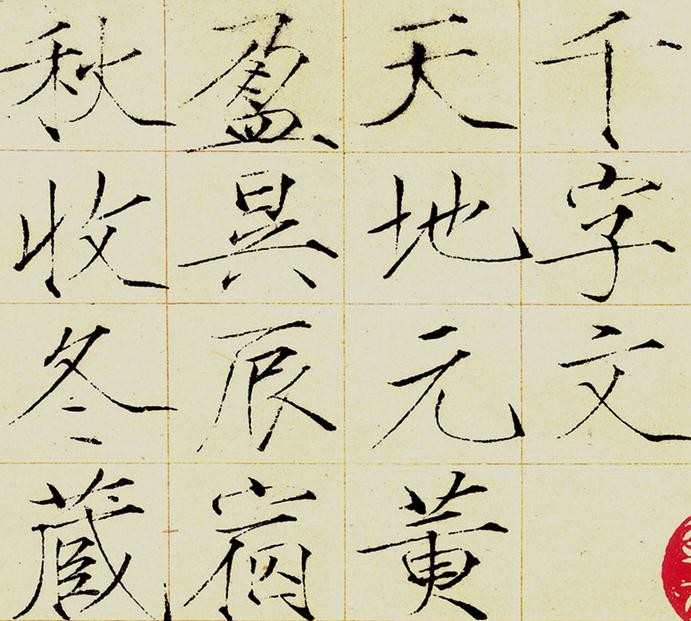 千字文
天地元黄
盈昃辰宿
秋收冬蔵